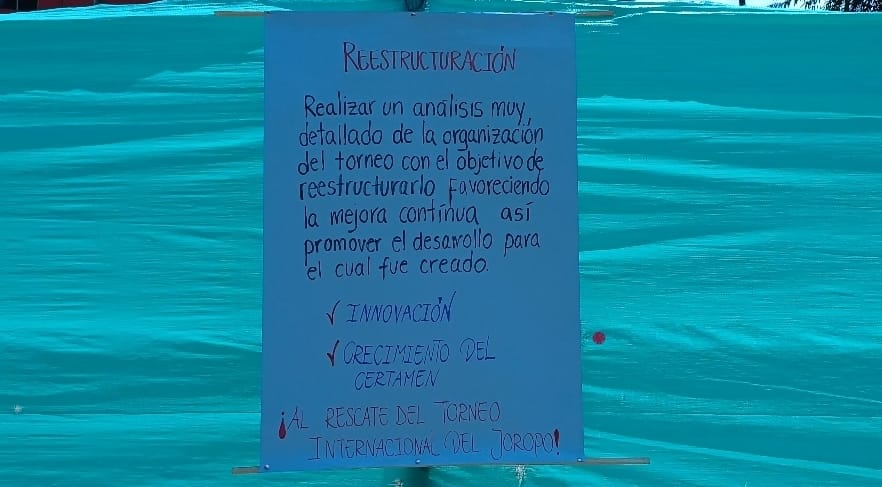 REESTRUCTURACIÓN
Realizar un análisis muy
detallado de la organización
del torneo con el objetivo de
reestructurarlo favoreciendo
la mejora contínua así
promover el desarrollo para
el cual fue creado.
√ INNOVACIÓN
√ CRECIMIENTO DEL
CERTAMEN
¡AL RESCATE DEL TORNEO
INTERNACIONAL DEL JOROPO!